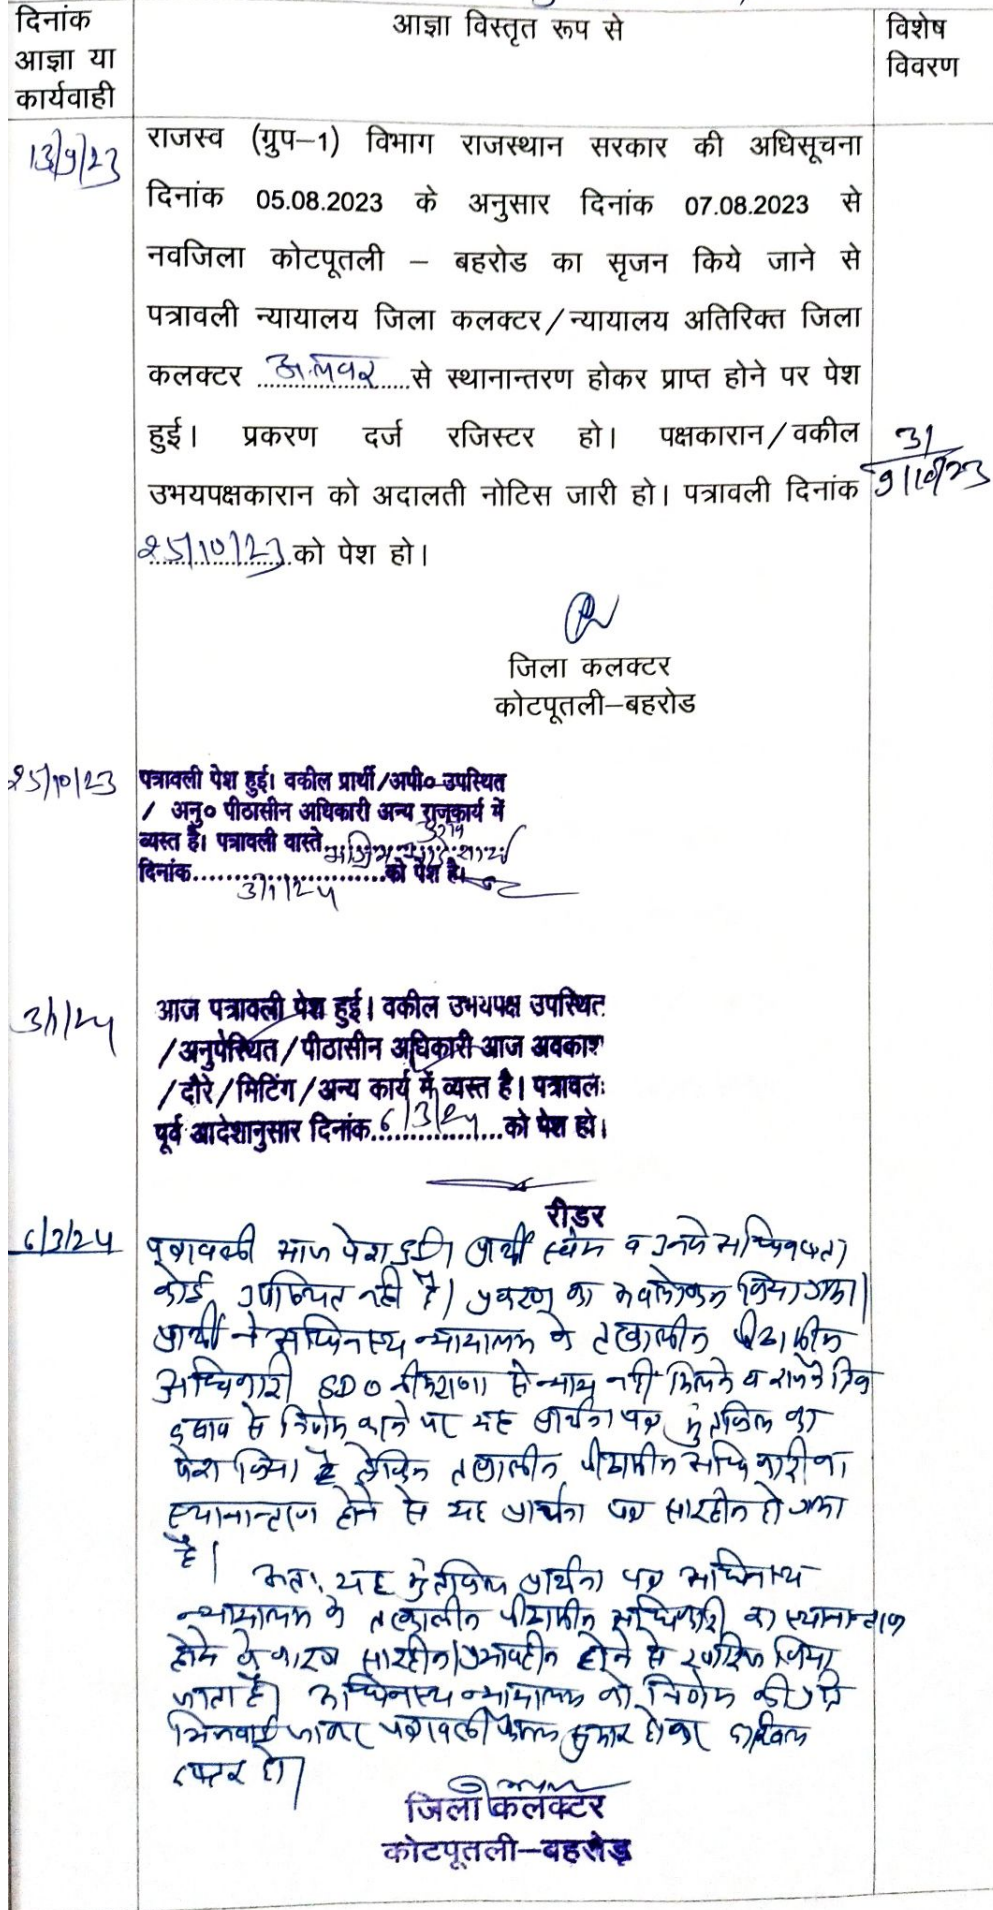 दिनांक
आज्ञा या
कार्यवाही
आज्ञा विस्तृत रूप से
विशेष
विवरण
13/9/23
राजस्व (ग्रुप–1) विभाग राजस्थान सरकार की अधिसूचना
दिनांक 05.08.2023 के अनुसार दिनांक 07.08.2023 से
नवजिला कोटपूतली – बहरोड का सृजन किये जाने से
पत्रावली न्यायालय जिला कलक्टर/न्यायालय अतिरिक्त जिला
कलक्टर अलवर से स्थानान्तरण होकर प्राप्त होने पर पेश
हुई। प्रकरण दर्ज रजिस्टर हो। पक्षकारान/वकील
उभयपक्षकारान को अदालती नोटिस जारी हो। पत्रावली दिनांक
25/10/23 को पेश हो।
31
9/10/23
जिला कलक्टर
कोटपूतली–बहरोड
25/10/23
पत्रावली पेश हुई। वकील प्रार्थी/अपी० उपस्थित
/ अनु० पीठासीन अधिकारी अन्य राजकार्य में
व्यस्त है। पत्रावली वास्ते
दिनांक 3/1/24 को पेश है।
3/1/24
आज पत्रावली पेश हुई। वकील उभयपक्ष उपस्थित
/अनुपेस्थित/पीठासीन अधिकारी आज अवकाश
/दौरे/मिटिंग/अन्य कार्य में व्यस्त है। पत्रावल
पूर्व आदेशानुसार दिनांक 6/3/24 को पेश हो।
रीडर
6/3/24
पत्रावली आज पेश हुई। प्रार्थी स्वयं व उनके अधिवक्ता
कोई उपस्थित नहीं है। प्रकरण का अवलोकन किया गया।
प्रार्थी ने अधिनस्थ न्यायालय के तत्कालीन पीठासीन
अधिकारी SDO नीमराणा से न्याय नहीं मिलने व राजनैतिक
दबाव से निर्णय करने पर यह प्रार्थना पत्र मुंतकिल का
पेश किया है लेकिन तत्कालीन पीठासीन अधिकारी का
स्थानान्तरण होने से यह प्रार्थना पत्र सारहीन हो गया
है।
अतः यह मुंतकिल प्रार्थना पत्र अधिनस्थ
न्यायालय के तत्कालीन पीठासीन अधिकारी का स्थानान्तरण
होने के कारण सारहीन/प्रभावहीन होने से खारिज किया
जाता है। अधिनस्थ न्यायालय को निर्णय की प्रति
भिजवाई जाकर पत्रावली फैसल शुमार होकर दाखिल
दफ्तर हो।
जिला कलक्टर
कोटपूतली–बहरोड़